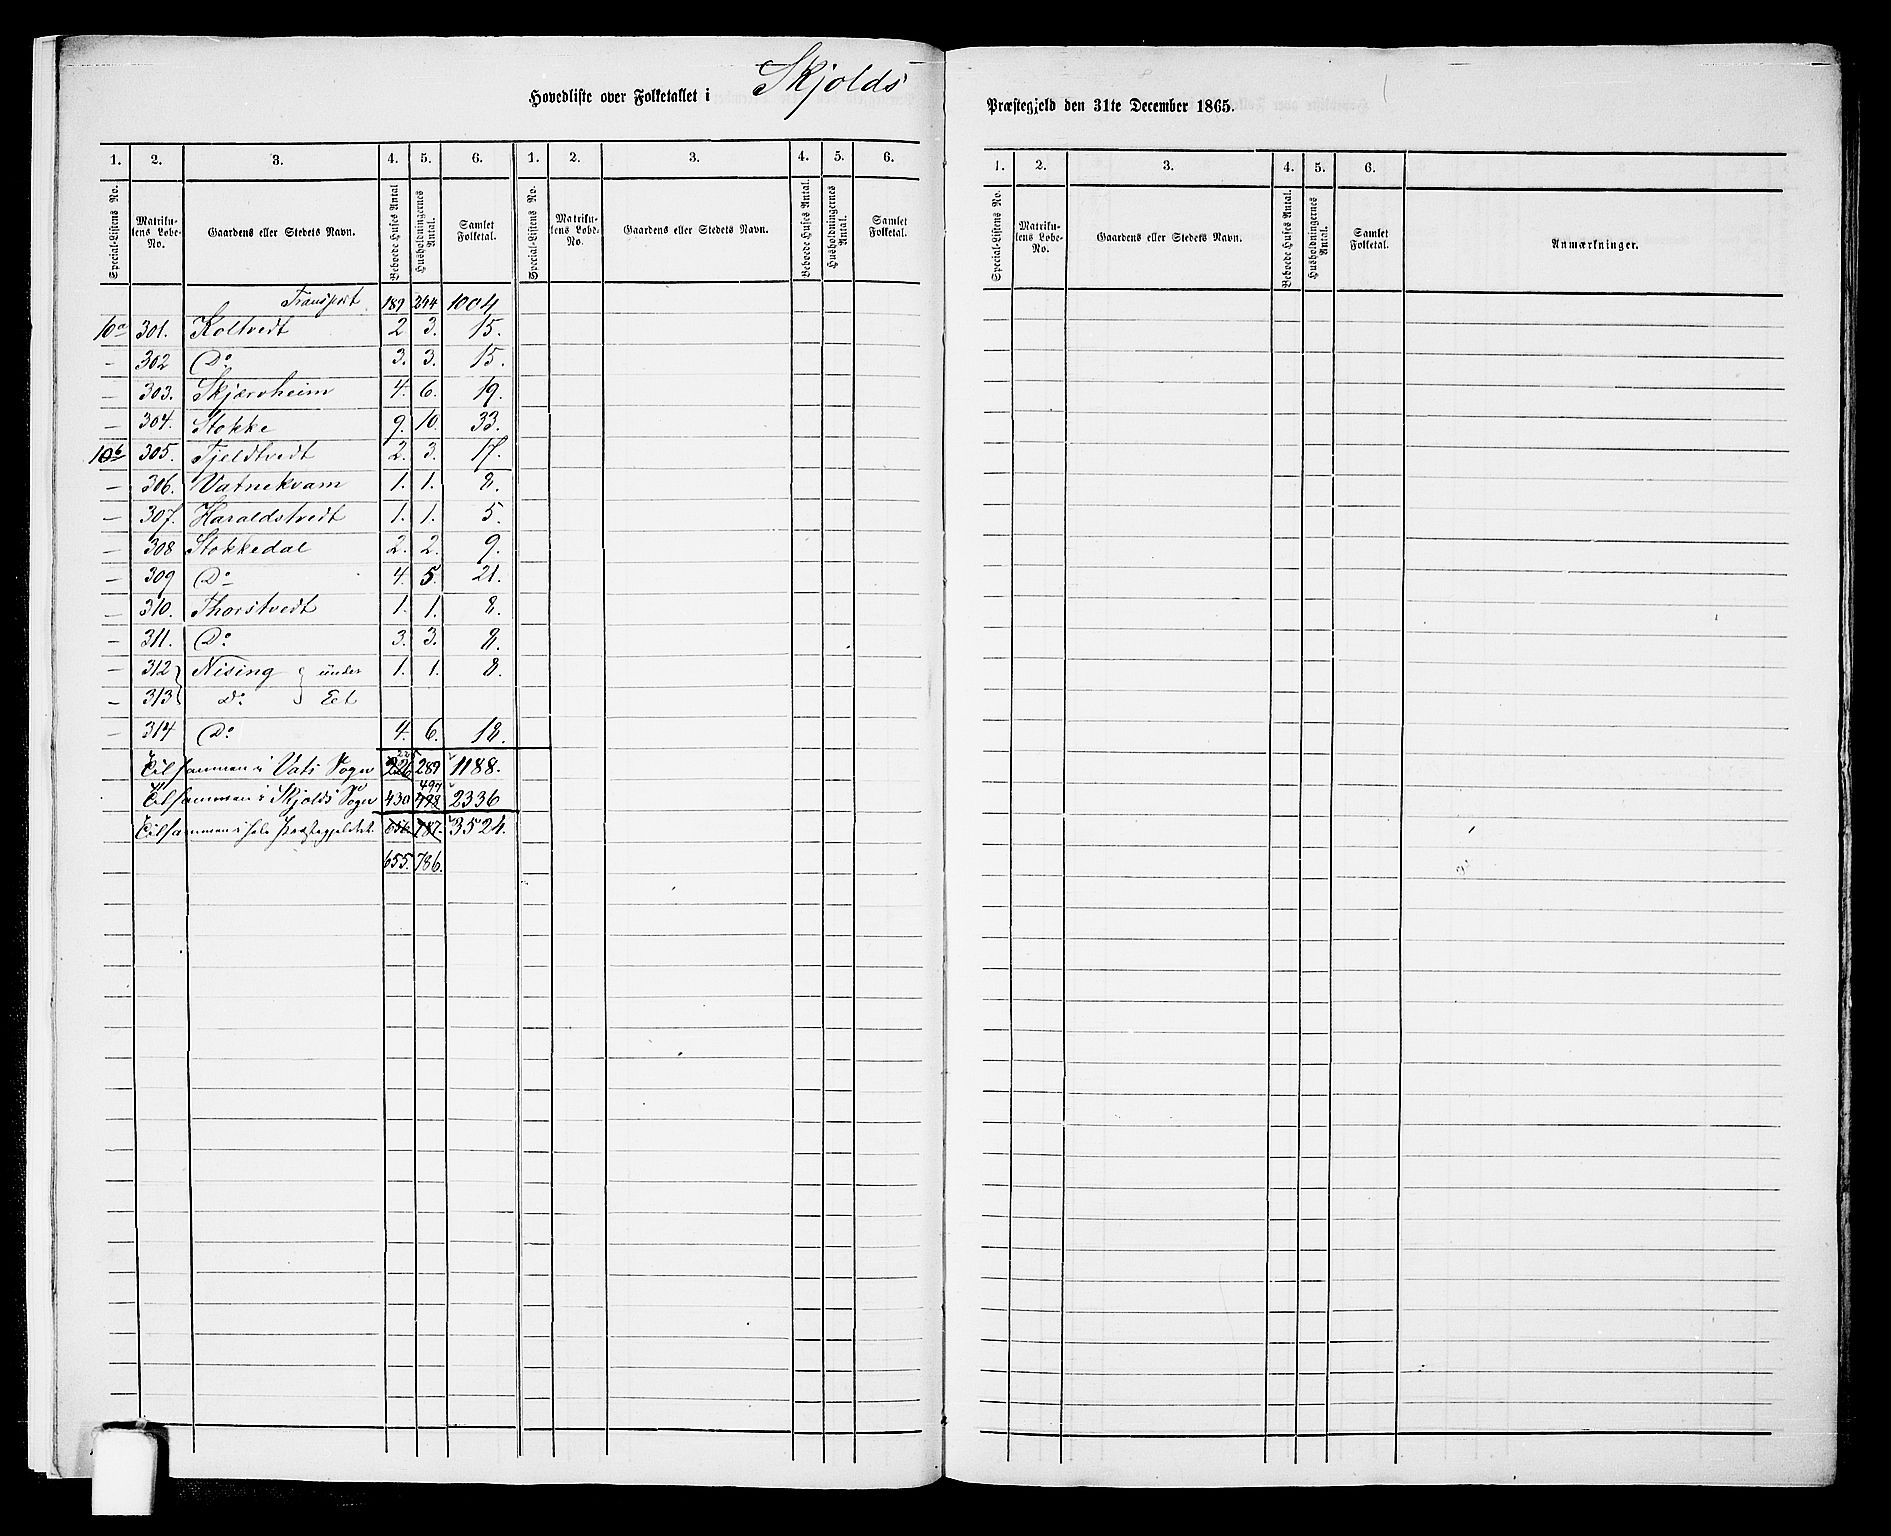 Hovedliste over Folketallet i Skjolds Præstegjeld den 31te December 1865.
1. 2. 3. 4. 5. 6. 1. 2. 3. 4. 5. 6.
Special-Listens No. Matriku-lens Løbe-No. Gaardens eller Stedets Navn. Beboede Huses Antal Husholdningernes Antal. Samlet Folketal. Special-Listens No. Matriku-lens Løbe-No. Gaardens eller Stedets Navn. Beboede Huses Antal. Husholdningernes Antal. Samlet Folketal.
Transport 189 244 1004
10a 301. Koltvedt 2 3. 15.
— 302 Do 3. 3. 15.
— 303. Skjærvheim 4. 6. 19.
— 304. Stokke 9. 10. 33.
10b 305. Fjeldtvedt 2. 3. 17.
— 306. Vatnekvam 1. 1. 8.
— 307. Haraldstvedt 1. 1. 5.
— 308 Stokkedal 2. 2. 9.
— 309 Do 4. 5. 21.
— 310. Thorstvedt 1. 1. 8.
— 311. Do 3. 3. 8.
— 312 Nising } under 1. 1. 8.
— 313 do } Eet
314 Do 4. 6. 18.
Tilsammen i Vats Sogn 226 225 289 1188.
Tilsammen i Skjolds Sogn 430 498 497 2336
Tilsammen i hele Præstegjeldet. 656. 787. 3524.
655. 786.
1. 2. 3. 4. 5. 6.
Special-Listens No. Matriku-lens Løbe-No. Gaardens eller Stedets Navn. Beboede Huses Antal. Husholdningernes Antal. Samlet Folketal. Anmærkninger.